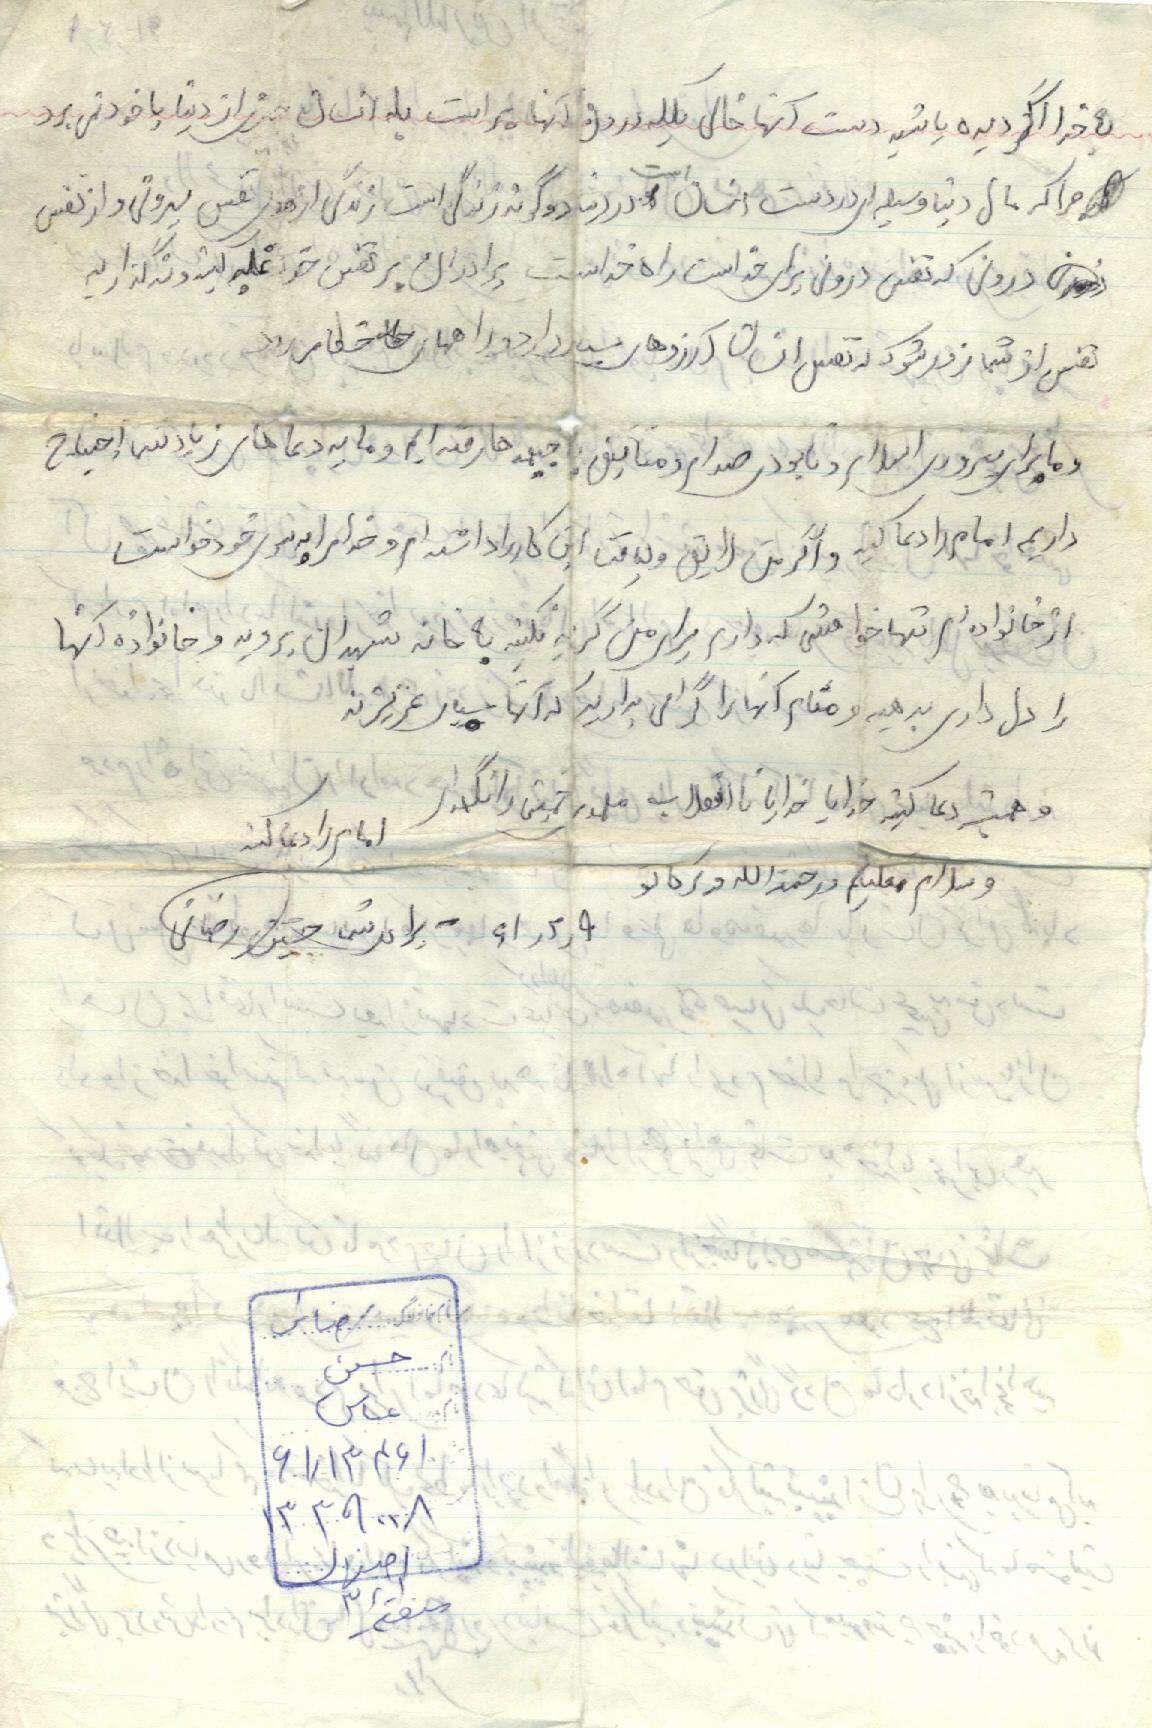 به خدا اگر دیده باشید دست آنها خالی بلکه در دو آنها پر است بله انسان چیزی از دنیا با خود نمی برد
چرا که مال دنیا وسیله ای در دست انسان است در دنیا دو گونه زندگی است زندگی از نفس بیرونی و از نفس
درونی که نفس درونی برای خداست راه خداست برادران بر نفس خود غلبه کنید و نگذارید
نفس از شما زور شود که نفس انسان آرزوهای بسیار دارد و راههای خطا می رود
و ما برای پیروزی اسلام و نابودی صدام و منافقین به جبهه ها رفته ایم و ما به دعاهای زیاد شما احتیاج
داریم امام را دعا کنید و اگر من لایق ولیاقت این کار را داشته ام و خدا مرا به سوی خود خواست
از خانواده ام تنها خواهشی که دارم برای من گریه نکنید به خانه شهیدان بروید و خانواده آنها
را دل داری بدهید و مقام آنها را گرامی بدارید که آنها بسیار عزیزند
و همیشه دعا کنید خدایا خدایا تا انقلاب مهدی خمینی را نگهدار
امام را دعا کنید
وسلام علیکم ورحمت الله وبرکاتو
۶۱٫۲٫۹ - برادر شما حسین رضائی
نام خانوادگی رضائی
نام حسین
نام پدر عباس
۶۱۱۳۴۶۱
۱۳۳۹۰۲۸
اصفهان
منطقه ۲